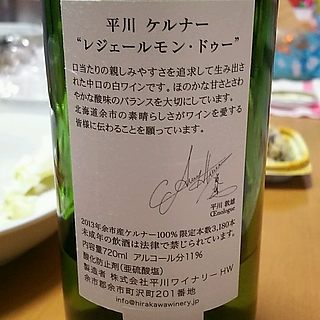 平川 ケルナー
“レジェールモン・ドゥー”
口当たりの親しみやすさを追求して生み出さ
れた中口の白ワインです。ほのかな甘さとさわ
やかな酸味のバランスを大切にしています。
北海道余市の素晴らしさがワインを愛する
皆様に伝わることを願っています。
平川 敦雄
Œnologue
2013年余市産ケルナー100% 限定本数3,180本
未成年の飲酒は法律で禁じられています。
内容量720ml アルコール分11%
酸化防止剤(亜硫酸塩)
製造者 株式会社平川ワイナリーHW
余市郡余市町沢町201番地
info@hirakawawinery.jp